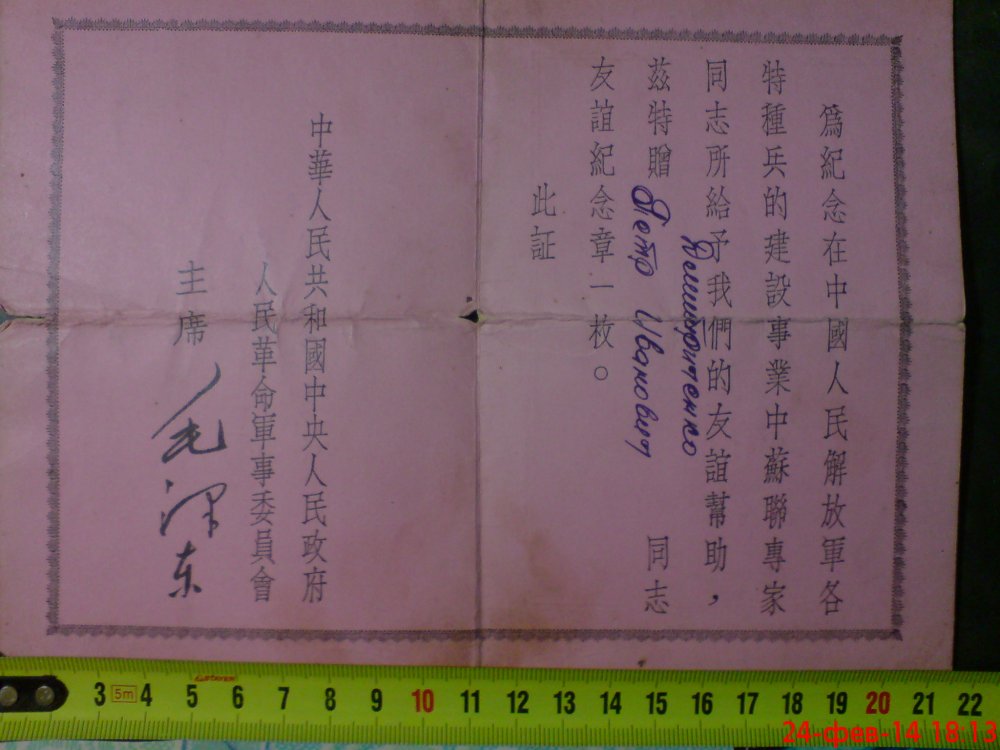 爲紀念在中國人民解放軍各
特種兵的建設事業中蘇聯專家
同志所給予我們的友誼幫助，
茲特贈 Петр Иванович 同志
友誼紀念章一枚。
此証
中華人民共和國中央人民政府
人民革命軍事委員會
主席 毛泽东
3 5m 4 5 6 7 8 9 10 11 12 13 14 15 16 17 18 19 20 21 22
24-фев-14 18:13